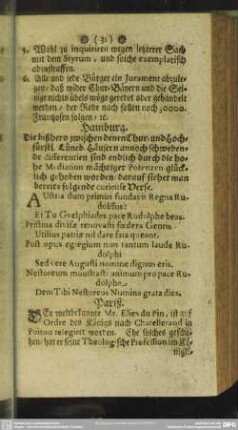 (3)
5. Wohl zu inquiriren wegen letzterer Sach
mit dem Styrum, und solche exemplarisch
abzustraffen.
6. Alle und jede Bürger ein Jurament abzule-
gen, daß wider Chur-Bäyern und die Sei-
nige nichts übels möge geredet oder gehandelt
werden, der Rede nach sollen noch 3000.
Frantzosen folgen, ꝛc.
Hamburg.
Die bißhero zwischen denen Chur- und Hoch-
fürstl. Lüneb. Häusern annoch schweben-
de differentien sind endlich durch die ho-
he Mediation mächtiger Potenzen glück-
lich gehoben worden, darauf siehet man
bereits folgende curieuse Verse.
AUstria dum primus fundavit Regna Ru-
dolffus,
Et Tu Gvelphiades pace Rudolphe beas.
Pristina divisæ renovasti fœdera Gentis
Utilius patriæ nil dare fata queant.
Post opus egregium non tantum laude Ru-
dolphi
Sed vere Augusti nomine dignus eris.
Nestoreum monstrasti animum pro pace Ru-
dolphe
Dent Tibi Nestoreos Numina grata dies.
Pariß.
DEr weltbekannte Mr. Elies du Pin, ist auf
Ordre des Königs nach Chatelleraud in
Poitou relegirt worden. Ehe solches gesche-
hen, hat er seine Theologische Profession im Kö-
nigl.
SLUB
DFG